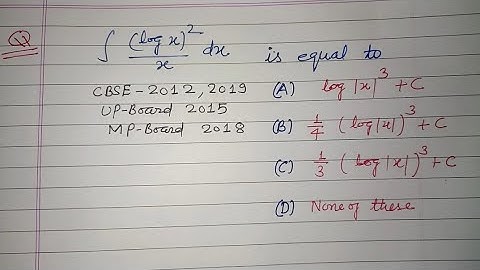 Q ∫ (log x)² / x dx is equal to
CBSE - 2012, 2019 (A) log |x|³ + C
UP-Board 2015
MP-Board 2018 (B) 1/4 (log|x|)³ + C
(C) 1/3 (log|x|)³ + C
(D) None of these